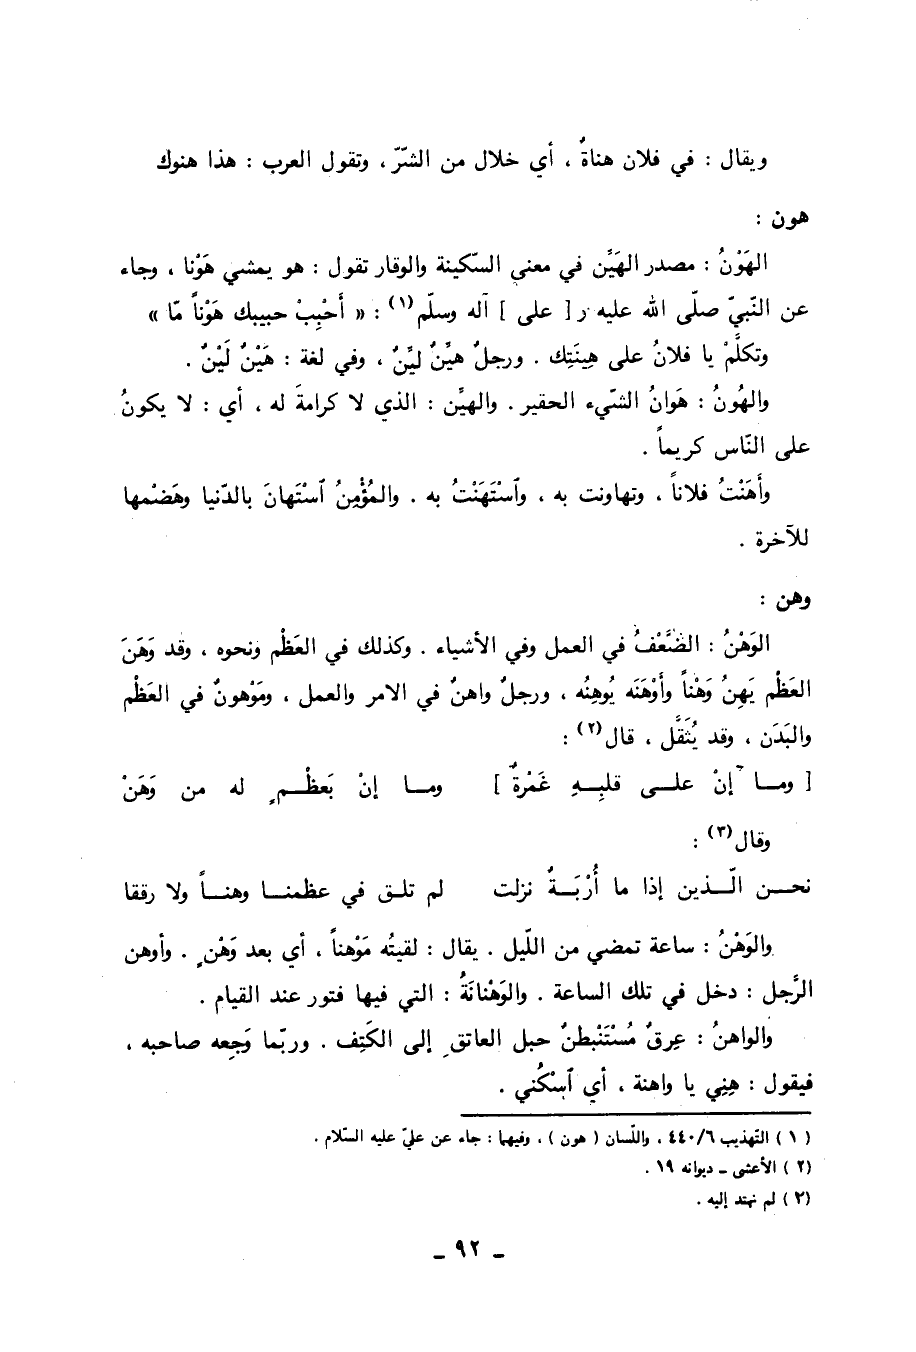 ويقال : في فلان هناةٌ ، أي خلال من الشّرّ ، وتقول العرب : هذا هنوك
هون :
الهَوْنُ : مصدر الهَيِّن في معنى السّكينة والوقار تقول : هو يمشي هَوْنا ، وجاء
عن النّبيّ صلّى الله عليه و[ على ] آله وسلّم(١) : « أَحْبِبْ حبيبك هَوْناً مّا »
وتكلَّمْ يا فلانُ على هِينَتِك . ورجلٌ هيِّنٌ ليِّنٌ ، وفي لغة : هَيْنٌ لَيْنٌ .
والهُونُ : هَوانُ الشّيء الحقير . والهيِّن : الذي لا كرامةَ له ، أي : لا يكونُ
على النّاس كريماً .
وأَهَنْتُ فلاناً ، وتهاونت به ، وٱسْتَهَنْتُ به . والمُؤْمِنُ ٱسْتَهانَ بالدّنيا وهَضْمها
للآخرة .
وهن :
الوَهْنُ : الضَّعْفُ في العمل وفي الأشياء . وكذلك في العَظْم ونحوه ، وقد وَهَنَ
العَظْم يَهِنُ وَهْناً وأَوْهَنَه يُوهِنُه ، ورجلٌ واهنٌ في الامر والعمل ، ومَوْهونٌ في العَظْم
والبَدَن ، وقد يُثَقَّل ، قال(٢) :
[ ومـا إنْ علـى قلبِـهِ غَمْرةٌ ] ومـا إنْ بَعظْـمٍ له من وَهَنْ
وقال(٣) :
نحـن الّـذين إذا ما أُرْبَـةٌ نزلت لم تلـق في عظمنـا وهنـاً ولا رققا
والوَهْنُ : ساعة تمضي من اللّيل . يقال : لقيتُه مَوْهناً ، أي بعد وَهْنٍ . وأوهن
الرَّجل : دخل في تلك الساعة . والوَهْنانَةُ : التي فيها فتور عند القيام .
والواهنُ : عِرقٌ مُسْتَبْطنٌ حبل العاتقِ إلى الكَتِف . وربّما وَجِعه صاحبه ،
فيقول : هِنِي يا واهنة ، أي ٱسْكُني .
( ١ ) التّهذيب ٤٤٠/٦ ، واللّسان ( هون ) ، وفيهما : جاء عن عليّ عليه السّلام .
( ٢ ) الأعشى ـ ديوانه ١٩ .
( ٣ ) لم نهتد إليه .
ـ ٩٢ ـ